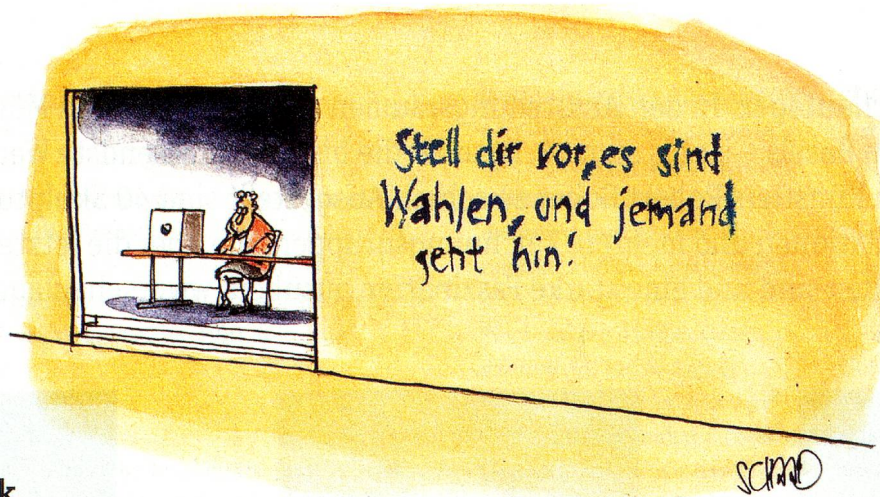 Stell dir vor, es sind
Wahlen, und jemand
geht hin!
SCHAAD
k